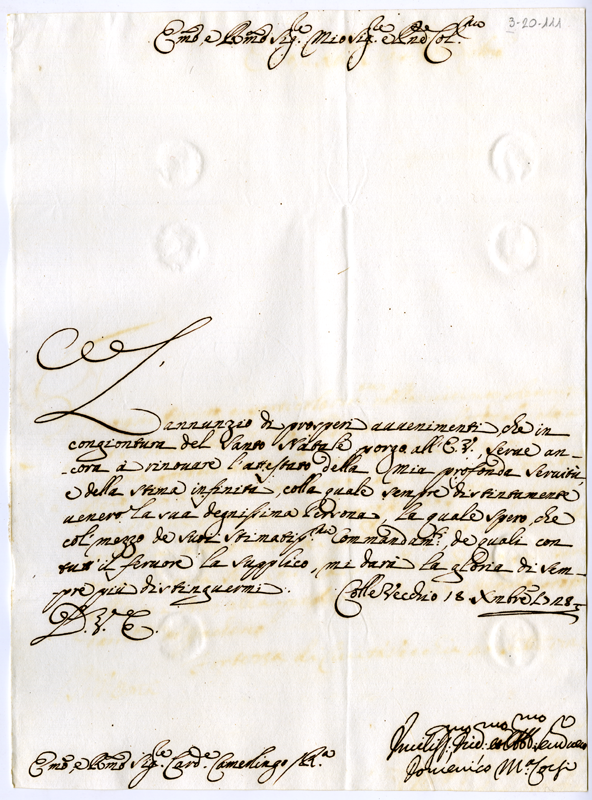 3-20-111
Emo, e Rmo Sig.re Mio Sig.re e Pne Col.mo
L'annunzio di prosperi avvenimenti, che in
congiontura del Santo Natale porgo all'E.V., serve an-
-cora à rinovare l'attestato della mia profonda servitù,
e della stima infinita, colla quale sempre distintamente
venero la sua degnissima Persona, la quale spero, che
col mezzo de suoi stimatiss.mi Commandam.ti, de quali con
tutt'il fervore la supplico, mi darà la gloria di sem-
pre più distinguermi. Colle Vecchio 18 Xmbre 1728
D. V. E.
Emo, e Rmo Sig.re Card.e Camerlingo
Umiliss.mo Obb.mo
Domenico M.a Corsi